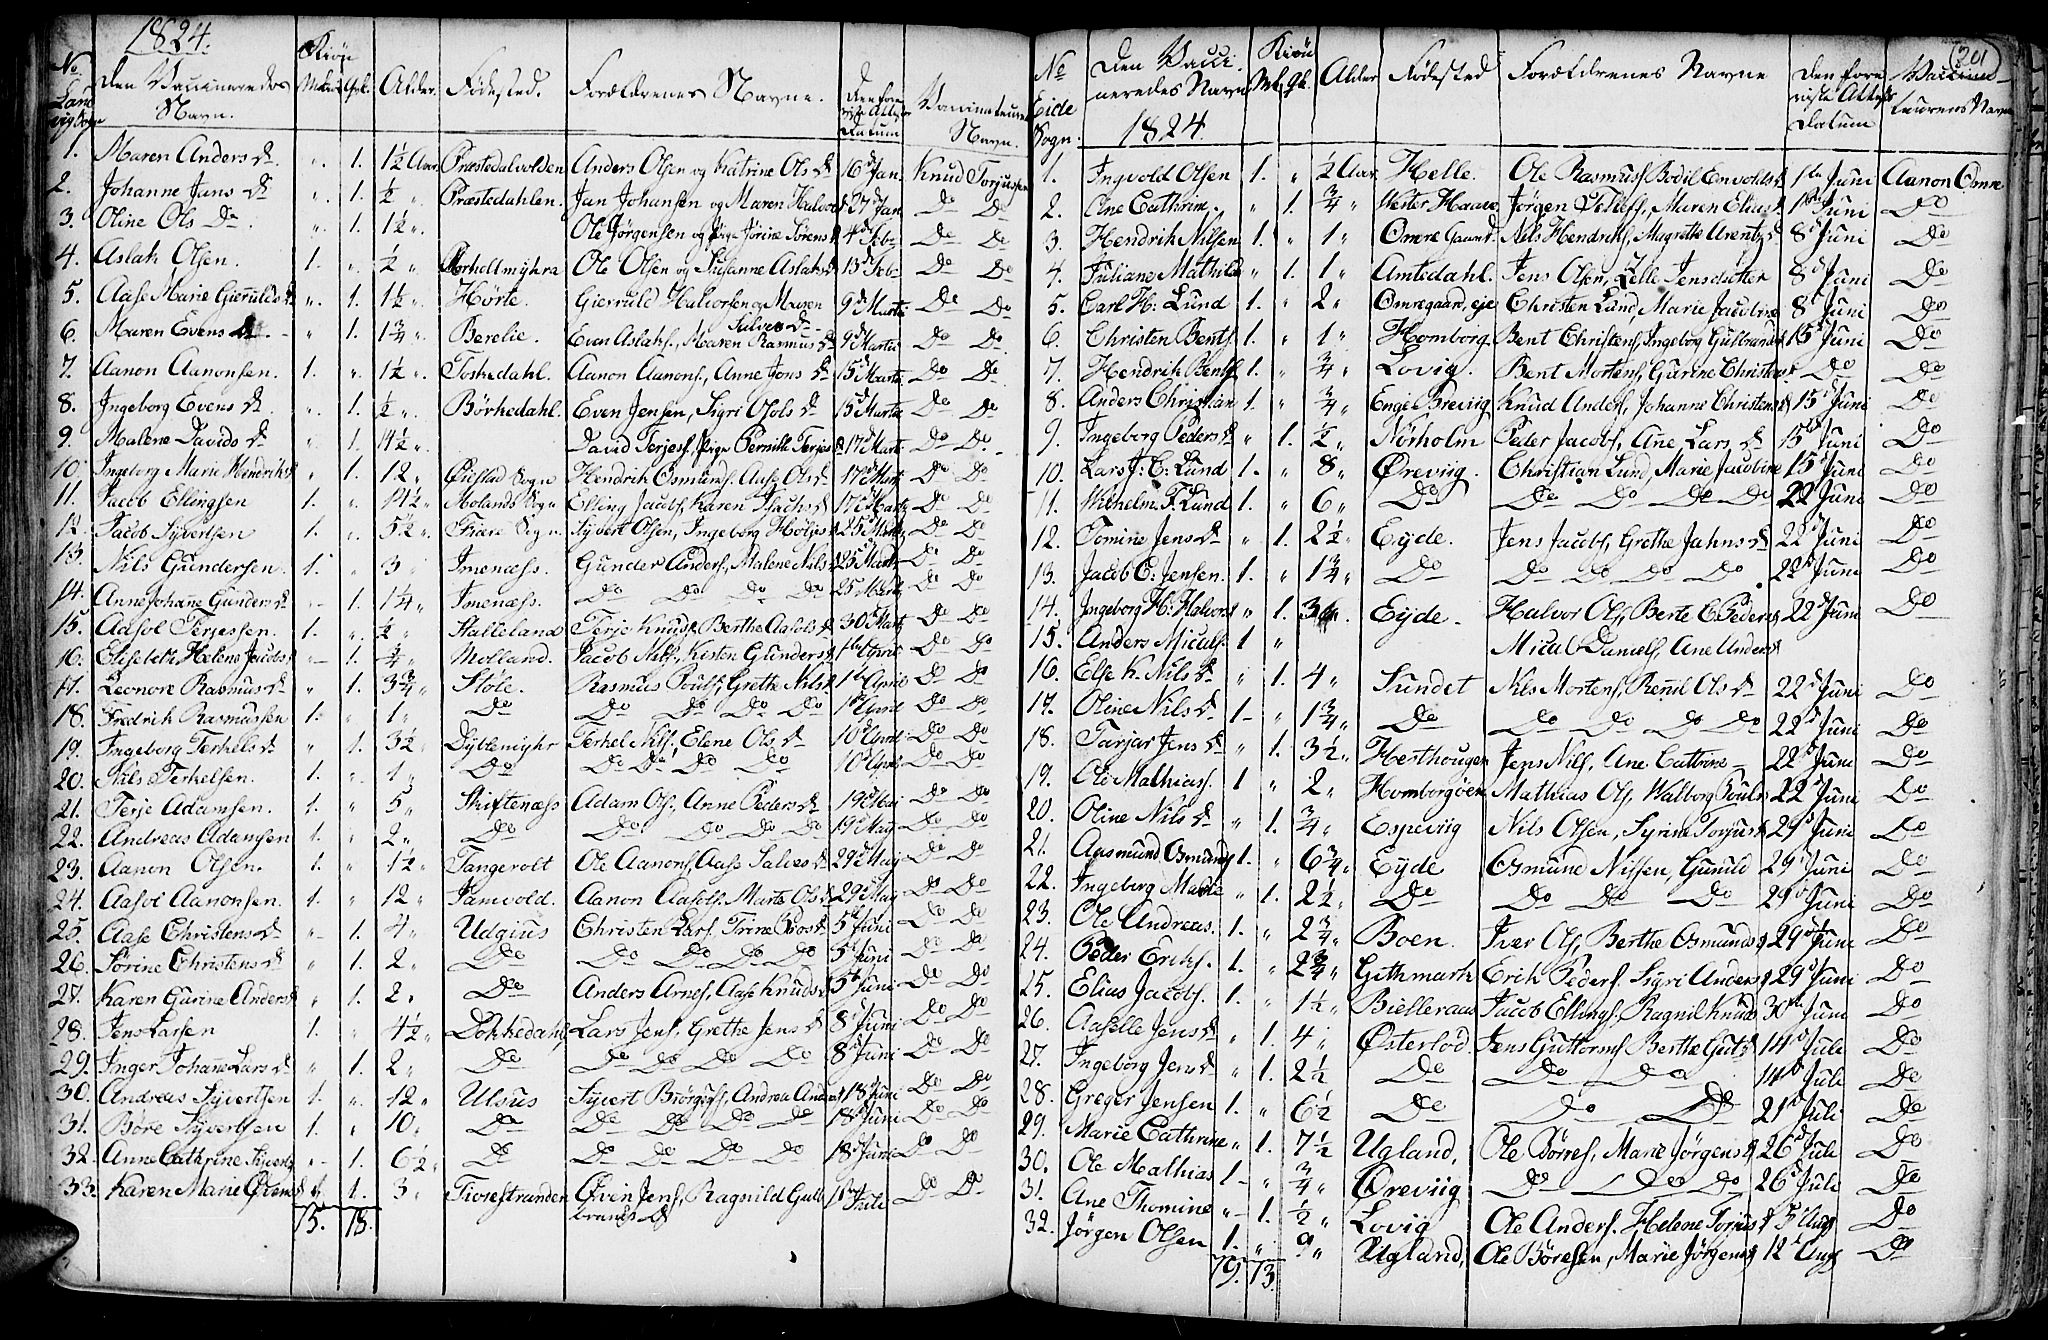 1824.
No Landvig Sogn
Den Vaccineredes Navn.
Kiön
Alder.
Födested.
Forældrenes Navne.
Datum
Vaccinateurens Navn.
1. Maren Anders D. „ 1. 1½ Aar Præstedalvolden Anders Olsen og Katrine Ols D. 16 d Jan. Knud Torjussen
2. Johanne Jans D. „ 1. ½ „ Præstedahlen. Jan Johansen og Maren Halvor D. 27 d Jan Do Do
3. Oline Ols D. „ 1. 1½ „ Ole Jørgensen og Pige Jørine Sørens D. 4 d Feb. Do Do
4. Aslak Olsen. 1. „ ½ „ Ole Olsen og Susanne Aslaks D. 13 d Feb. Do Do
5. Aase Marie Gierulds D. „ 1. 1½ „ Hørte. Gieruld Halvorsen og Maren Salves D. 9 d Marts Do Do
6. Maren Evens D. „ 1. 1¾ „ Berelie. Even Aslaks., Maren Rasmus D. 9 d Marts Do Do
7. Aanon Aanonsen. 1. „ 1½ „ Toskedahl. Aanon Aanons., Anne Jons D. 15 d Marts Do Do
8. Ingeborg Evens D. „ 1. ½ „ Børkedahl. Even Jensen, Sigri Olols D. 15 d Marts Do Do
9. Malene Davids D. „ 1. 11½ „ David Terjes., Pige Pernille Terjes D. 17 d Marts Do Do
10. Ingeborg Marie Hendriks D. „ 1. 12 „ Øiestad Sogn Hendrik Osmunds., Aase Ols D. 17 d Marts Do Do
11. Jacob Ellingsen 1. „ 11½ „ Molands Sogn Elling Jacobs., Karen Isachs D. 17 d Marts Do Do
12. Jacob Syvertsen 1. „ 5½ „ Fiære Sogn Syvert Olsen, Ingeborg 25 d Marts Do Do
13. Nils Gundersen. 1. „ 3 „ Imenæss. Gunder Anders., Malene Nils D. 25 d Marts Do Do
14. Anne Johanne Gunders D. „ 1. 1¼ „ Imenæss. Do Do Do Do 25 Marts Do Do
15. Aasol Terjessen. 1. „ ½ „ Stalleland Terje Knuds., Berthe Aasols D. 30 d Marts Do Do
16. Elisebeth Helene Jacobs D. „ 1. ¾ „ Molland. Jacob Nils., Kisten Gunders D. 1ste April Do Do
17. Leonore Rasmus D. „ 1. 3¾ „ Støle. Rasmus Pouls., Grethe Nils D. 1ste April Do Do
18. Fredrik Rasmussen 1. „ 1 „ Do Do Do Do Do 1ste April Do Do
19. Ingeborg Terkels D. „ 1. 3½ „ Dyblemyhr Terkel Nils., Elene Ols D. 10 d April Do Do
20. Nils Terkelsen. 1. „ 1 „ Do Do Do Do Do 10 d April Do Do
21. Terje Adamsen. 1. „ 5 „ Skiftenæss Adam Ols., Anne Peders D. 19 d Maj Do Do
22. Andreas Adamsen 1. „ 2 „ Do Do Do Do Do 19 d Maj Do Do
23. Aanon Olsen. 1. „ 1½ „ Tangevolt Ole Aanons., Aase Salves D. 29 d Maj Do Do
24. Aasol Aanonsen. 1. „ 12 „ Jamvold. Aanon Aasols., Marte Ols D. 29 d Maj Do Do
25. Aase Christens D. „ 1. 4 „ Udgius Christen Lars., Trine 5 d Juni Do Do
26. Sørine Christens D. „ 1. 2 „ Do Do Do Do Do 5 d Juni Do Do
27. Karen Gurine Anders D. „ 1. 2 „ Do Anders Arnes., Aase Knuds D. 5 d Juni Do Do
28. Jens Larsen 1. „ 4½ „ Dokkedahl, Lars Jens., Grethe Jens D. 8 d Juni Do Do
29. Inger Johanne Lars D. „ 1. 2 „ Do Do Do Do Do 8 d Juni Do Do
30. Andreas Syvertsen 1. „ 12 „ Ulsus Syvert Andrea 18 d Juni Do Do
31. Børe Syvertsen 1. „ 10 „ Do Do Do Do Do 18 d Juni Do Do
32. Anne Cathrine Syverts „ 1. 6½ „ Do Do Do Do Do 18 d Juni Do Do
33. Karen Marie „ 1. 3 „ Tiorestranden Jens., Ragnild Guldbrands D. Juli Do Do
15. 18.
201
No Eide Sogn.
Den Vaccineredes Navn
1824.
Kiön
Mk. Qk.
Alder
Födested
Forældrenes Navne
Den foreviste Attests Datum
Vaccinateurens Navn
1. Ingvold Olsen 1. „ ½ Aar Helle. Ole Rasmus., Bodil Envolds D. 1ste Juni Aanon Omre
2. Ane Cathrine. „ 1. ¾ „ Vester Haave Jørgen Maren Elias D. 1ste Juni Do
3. Hendrik Nilsen 1. „ 1 „ Omre Gaard. Nils Hendriks., Magrethe Arentz D. 8 d Juni Do
4. Juliane Mathilde „ 1. 1 „ Amtedahl. Jens Olsen, Jensdatter 8 d Juni Do
5. Carl H. Lund 1. „ 2 „ Omregaard, eje Christen Lund, Marie Jacobine 8 d Juni Do
6. Christen Bents. 1. „ 1 „ Homborg. Bent Christens., Ingeborg Gulbrands D. 15 d Juni Do
7. Hendrik Bents. 1. „ ¾ „ Lovig. Bent Mortens., Gurine Christens D. Do Do
8. Anders Christian 1. „ ¾ „ Enge Breviig Knud Anders., Johanne Christens D. 15 d Juni Do
9. Ingeborg Peders D. „ 1. ½ „ Nørholm Peder Jacobs., Ane Lars D. 15 d Juni Do
10. Lars J. C. Lund 1. „ 8 „ Øreviig. Christian Lund, Marie Jacobine 15 d Juni Do
11. Wilhelm F. Lund 1. „ 6 „ Do Do Do Do Do 22 Juni Do
12. Tomine Jens D. „ 1. 2½ „ Eyde. Jens Jacobs., Grethe Jahns D. 22 d Juni Do
13. Jacob C. Jensen. 1. „ 1¾ „ Do Do Do Do Do 22 d Juni Do
14. Ingeborg H. Halvors D. „ 1. 3 „ Eyde. Halvor Ols., Berte C. Peders D. 22 d Juni Do
15. Anders Micals. 1 „ Micul Daniels., Ane Anders D.
16. Else K. Nils D. „ 1. 4 „ Sundet Nils Mortens., Renil Ols D. 22 d Juni Do
17. Oline Nils D. 1 „ 1¾ „ Do Do Do Do Do 22 d Juni Do
18. Tarjar Jens D. „ 1. 3½ „ Herthougen Jens Nils., Ane Cattrine 22 d Juni Do
19. Ole Mathias. 1 „ 2 „ Homborgöen Mathias Ols., Walborg Pouls D. 22 d Juni Do
20. Oline Nils D. „ 1. ¾ „ Espeviig Nils Olsen, Syrine Torjus D. 29 d Juni Do
21. Aasmund Osmunds. 1. „ 6¾ „ Eyde Osmund Nilssen, Gunuld 29 d Juni Do
22. Ingeborg Marie „ 1. 2½ „ Do Do Do Do 29 d Juni Do
23. Ole Andreas. 1. „ 2¾ „ Boen. Iver Ols., Berthe Osmunds D. 29 d Juni Do
24. Peder Eriks. 1. „ 2¾ „ Githmark Erik Peders., Sigri Anders D. 29 d Juni Do
25. Elias Jacobs. 1. „ 1½ „ Bielleraas Jacob Ellings., Ragnil Knuds 30te Juni Do
26. Aaselle Jens D. „ 1. 4 „ Østerlod Jens Guttorms., Berthe Guts D. 14 d Juli Do
27. Ingeborg Jens D. „ 1. 2½ Do Do Do 14 d Juli Do
28. Greger Jensen 1. „ 6½ Do Do Do Do 21 d Juli Do
29. Marie Cathrine „ 1. 7½ Ugland, Ole Børres., Marie Jørgens D. 26 d Juli Do
30. Ole Mathias 1 „ ¾ „ Øreviig Do Do Do 26 d Juli Do
31. Ane Thomine „ 1. ½ „ Lovig Ole Anders., Helene Torjus D. 5 d Aug Do
32. Jørgen Olsen 1. „ 9 „ Ugland, Ole Børesen, Marie Jørgens D. 12 d Aug Do
19. 13.